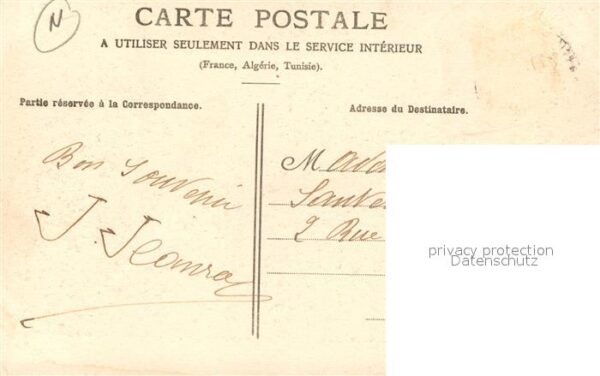 N
CARTE POSTALE
A UTILISER SEULEMENT DANS LE SERVICE INTÉRIEUR
(France, Algérie, Tunisie).
Partie réservée à la Correspondance.
Bon Souvenir
J. Jeanroy
Adresse du Destinataire.
M
2 Rue
privacy protection
Datenschutz